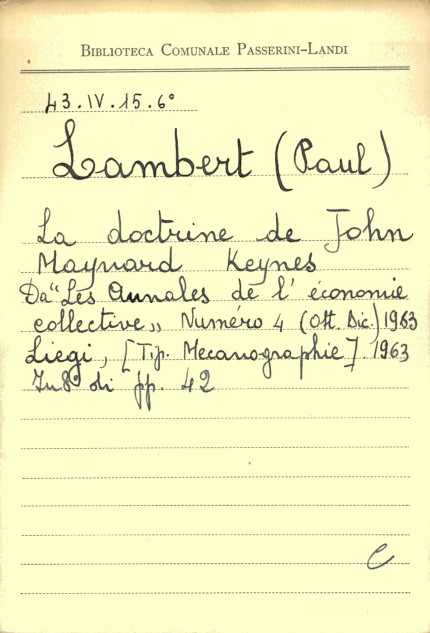 BIBLIOTECA COMUNALE PASSERINI-LANDI
43.IV.15.6°
Lambert (Paul)
La doctrine de John
Maynard Keynes
Da "Les Annales de l' économie
collective„ Numéro 4 (Ott. Dic.) 1963
Liegi, [Tip. Mecanographie]. 1963
In 8° di pp. 42
C